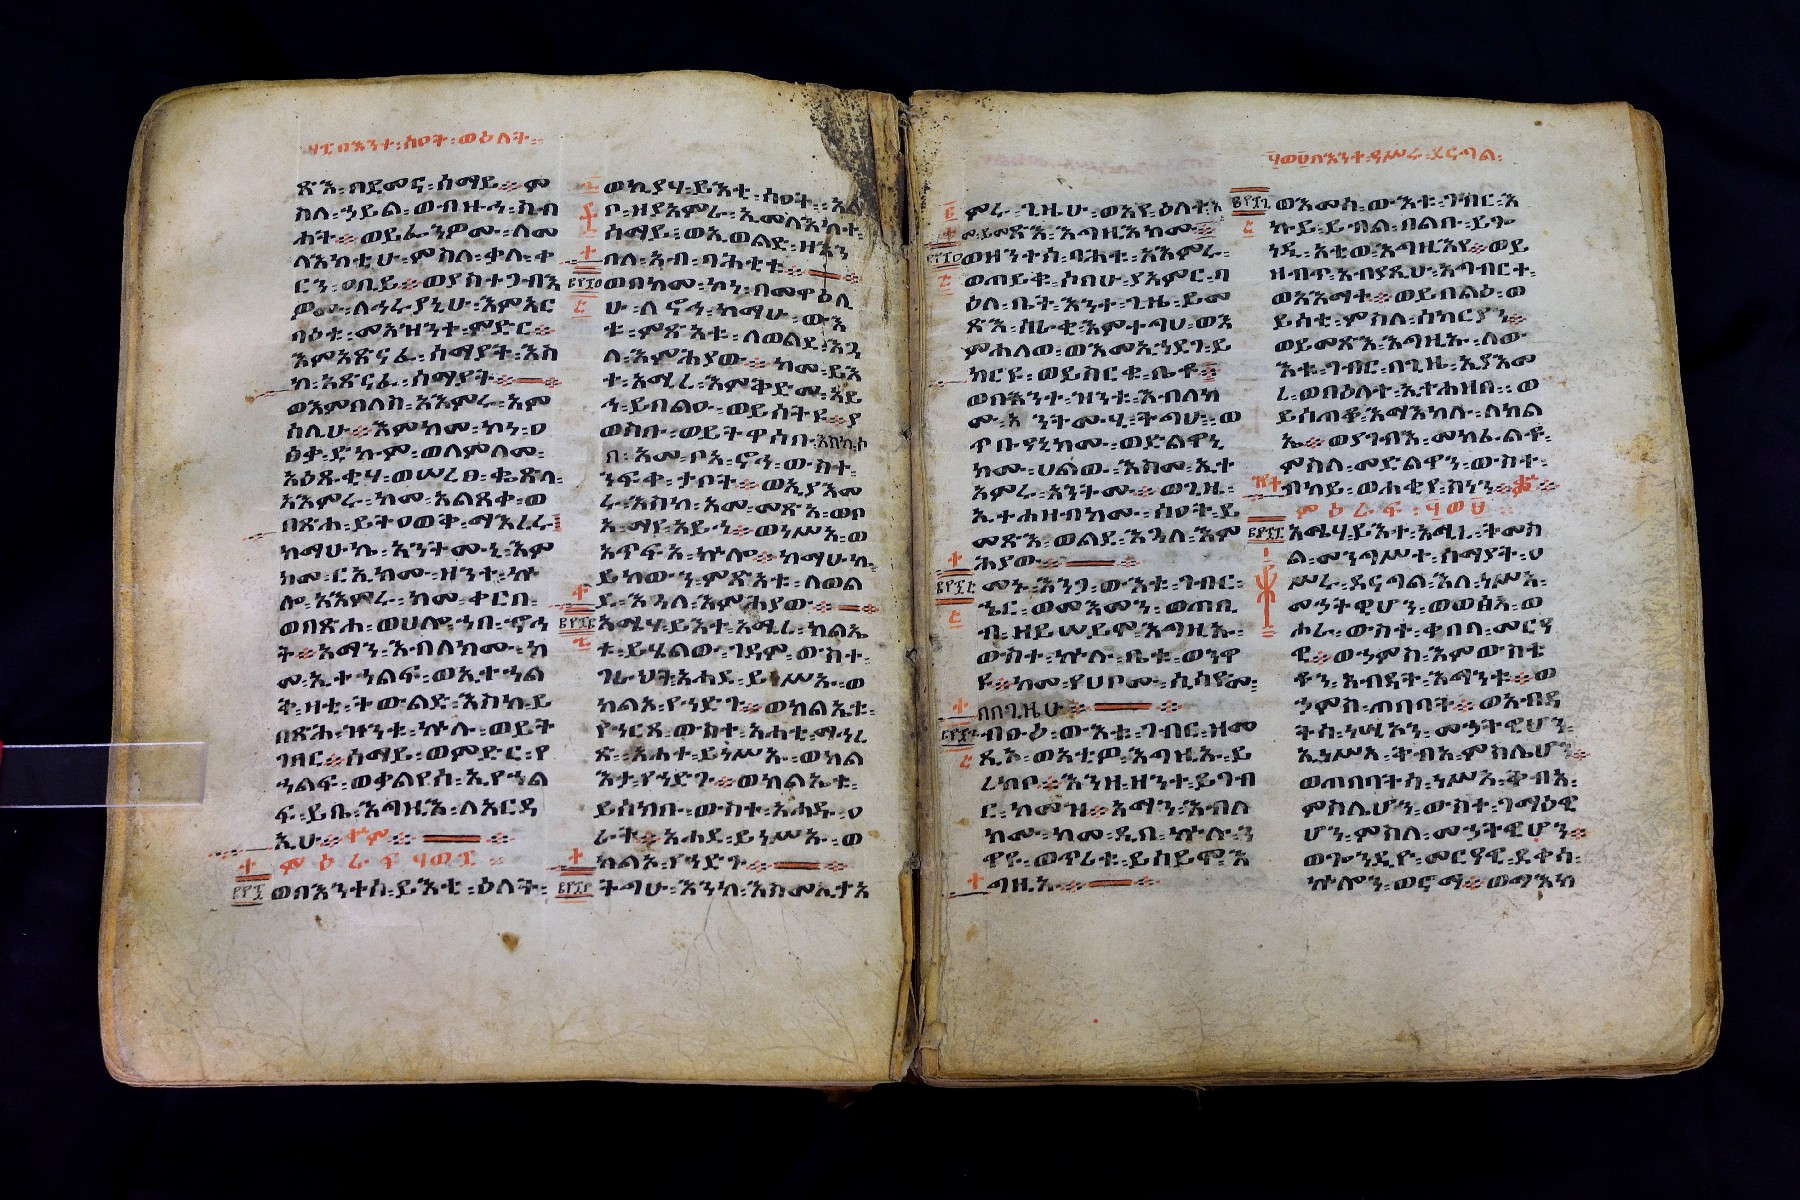 በእንተ፡ሰዓት፡ወዕለት።
ጽእ፡በደመና፡ሰማይ።ም
ስለ፡ኃይል፡ወብዙኅ፡ስብ
ሐት።ወይፌንዎሙ፡ለመ
ላእክቲሁ፡ምስለ፡ቃለ፡ቀ
ርን፡ዐቢይ።ወያስተጋብእ
ዎሙ፡ለኅሩያኒሁ፡እምአር
ባዕቱ፡መአዝንተ፡ምድር።
እምአጽናፈ፡ሰማያት፡እስ
ከ፡አጽናፈ፡ሰማያት።
ወእምበለስ፡አእምሩ፡አም
ሳሊሁ።እምከመ፡ኮነ፡ዐ
ፅቃ፡ድኩም፡ወለምለመ፡
አዕጹቂሃ፡ወሠረፀ፡ቈጽላ፡
አእምሩ፡ከመ፡አልጸቀ፡ወ
በጽሐ፡ይትዐወቅ፡ማእረሩ፡
ከማሁኬ፡አንትሙኒ፡እም
ከመ፡ርኢክሙ፡ዘንተ፡ኵ
ሎ፡አእምሩ፡ከመ፡ቀርበ፡
ወበጽሐ፡ወሀሎ፡ኀበ፡ኆኅ
ት።አማን፡እብለክሙ፡ከ
መ፡ኢተኀልፍ፡ወኢተኀል
ቅ፡ዛቲ፡ትውልድ፡እስከ፡ይ
በጽሕ፡ዝንቱ፡ኵሉ፡ወይት
ገበር።ሰማይ፡ወምድር፡የ
ኀልፍ፡ወቃልየሰ፡ኢየኀል
ፍ፡ይቤ፡እግዚእ፡ለአርዳ
ኢሁ።
ምዕራፍ
ወበእንተሰ፡ይእቲ፡ዕለት፡
ወኪያሃ፡ይእቲ፡ሰዓት፡አል
ቦ፡ዘያአምር፡ኢመላእክተ፡
ሰማይ፡ወኢወልድ፡ዘእን
በለ፡አብ፡ባሕቲቱ።
ወበከመ፡ኮነ፡በመዋዕሊ
ሁ፡ለኖኅ፡ከማሁ፡ውእ
ቱ፡ምጽአቱ፡ለወልደ፡እጓ
ለ፡እምሕያው።ከመ፡ይእ
ተ፡አሚረ፡እምቅድመ፡አይ
ኅ፡ይበልዑ፡ወይሰትዩ።ያ
ወስቡ፡ወይትዋሰቡ፡እስከ፡ሶ
በ፡አመ፡ቦአ፡ኖኅ፡ውስተ፡
ንፍቀ፡ታቦት።ወኢያእመ
ሩ፡እስከ፡አመ፡መጽአ፡ወቦ
አ፡ማየ፡አይኅ።ወነሥአ፡ወ
አጥፍአ፡ኵሎ።ከማሁኬ፡
ይከውን፡ምጽአቱ፡ለወል
ደ፡እጓለ፡እምሕያው።
አሜሃ፡ይእተ፡አሚረ፡ክልኤ
ቱ፡ይሄልው፡ገዳም፡ውስተ፡
ገራህት፡አሐደ፡ይነሥኡ፡ወ
ካልአ፡የኀድጉ።ወክልኤቱ፡
የኀርጻ፡ውስተ፡አሐቲ፡ማኅረ
ጽ፡አሐተ፡ይነሥኡ፡ወካል
እታ፡የኀድጉ።ወክልኤቱ፡
ይሰክቡ፡ውስተ፡አሐዱ፡ዐ
ራት።አሐደ፡ይነሥኡ፡ወ
ካልአ፡የኀድጉ።
ትግሁ፡እንከ፡እስመ፡ኢታአ
በእንተ፡ዓሥሩ፡ደናግል፡
ምሩ፡ጊዜሁ፡ወአየ፡ዕለተ፡
ይመጽእ፡እግዚእክሙ።
ወዘንተሰ፡ባሕቱ፡አእምሩ፡
ወጠይቁ፡ሶበሁ፡ያአምር፡ባ
ዕለ፡ቤት፡እንተ፡ጊዜ፡ይመ
ጽእ፡ሰራቂ፡እምተግህ፡ወእ
ምሐለወ፡ወእመኢኀደገ፡ይ
ክርዩ፡ወይሰርቁ፡ቤቶ።
ወበእንተ፡ዝንቱ፡እብለክ
ሙ፡አንትሙሂ፡ትግሁ።ወ
ጥቡዓኒክሙ፡ወድልዋኒ
ክሙ፡ሀልው፡እስመ፡ኢተ
አምሩ፡አንትሙ።ወጊዜ፡
ኢተሐዘብክሙ፡ሰዓት፡ይ
መጽእ፡ወልደ፡እጓለ፡እም
ሕያው።
መኑ፡እንጋ፡ውእቱ፡ገብር፡
ኄር፡ወመእመን፡ወጠቢ
ብ፡ዘይሠይሞ፡እግዚኡ፡
ውስተ፡ኵሉ፡ቤቱ፡ወንዋ
ዩ።ከመ፡የሀቦሙ፡ሲሳዮሙ፡
በበጊዜሁ።
ብፁዕ፡ውእቱ፡ገብር፡ዘመ
ጺኦ፡ወአቲዎ፡እግዚኡ፡ይ
ረክቦ።እንዘ፡ዘንተ፡ይገብ
ር፡ከመዝ።አማን፡እብለ
ክሙ፡ከመ፡ዲበ፡ኵሉ፡ን
ዋዩ፡ወጥሪቱ፡ይሰይሞ፡እ
ግዚኡ።
ወእመሰ፡ውእቱ፡ገብር፡እ
ኩይ፡ይብል፡በልቡ፡ይጐ
ነዲ፡አቲወ፡እግዚእየ።ወይ
ዘብጥ፡አብያጺሁ፡አግብርተ፡
ወአእማተ።ወይበልዕ፡ወ
ይሰቲ፡ምስለ፡ሰካርያን።
ወይመጽእ፡እግዚኡ፡ለው
እቱ፡ገብር፡በጊዜ፡ኢያእመ
ረ፡ወበዕለተ፡ኢተሐዘበ።ወ
ይሰጠቆ፡እማእከሉ፡ለክል
ኤ።ወያገብእ፡መክፈልቶ፡
ምስለ፡መድልዋን፡ውስተ፡
ብካይ፡ወሐቂየ፡ስነን።
ምዕራፍ
አሜሃ፡ይእተ፡አሚረ፡ትመስ
ል፡መንግሥተ፡ሰማያት፡ዐ
ሥሩ፡ደናግል፡እለ፡ነሥአ፡
መኃትዊሆን፡ወወፅአ፡ወ
ሖራ፡ውስተ፡ቀበላ፡መርዓ
ዊ።ወኃምስ፡እምውስቴ
ቶን፡አብዳት፡እማንቱ።ወ
ኃምስ፡ጠበባት።ወአብዳ
ትሰ፡ነሢኦን፡መኃትዊሆን፡
ኢነሥአ፡ቅብአ፡ምስሌሆን።
ወጠበባትሰ፡ነሥአ፡ቅብአ፡
ምስሌሆን፡ውስተ፡ገማዕዊ
ሆን፡ምስለ፡መኃትዊሆን።
ወጐንዲዮ፡መርዓዊ፡ደቀሳ፡
ኵሎን፡ወኖማ።ወማእከ